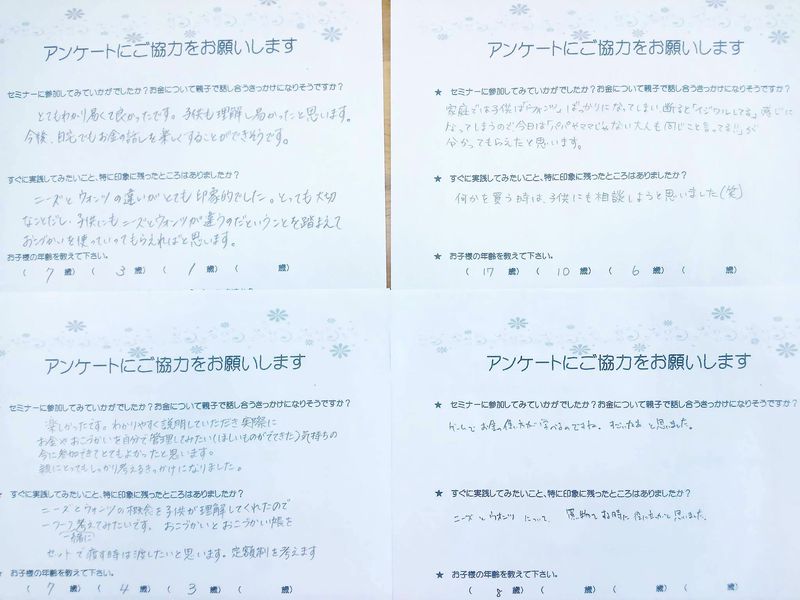 アンケートにご協力をお願いします
セミナーに参加してみていかがでしたか？お金について親子で話し合うきっかけになりそうですか？
とてもわかり易くて良かったです。子供も理解し易かったと思います。
今後、自宅でもお金の話しを楽しくすることができそうです。
すぐに実践してみたいこと、特に印象に残ったところはありましたか？
ニーズとウォンツの違いがとても印象的でした。とっても大切
なことだし、子供にもニーズとウォンツが違うのだということを踏まえて
おこづかいを使っていってもらえればと思います。
お子様の年齢を教えて下さい。
（ 7 歳）（ 3 歳）（ 1 歳）（ 歳）
アンケートにご協力をお願いします
★ セミナーに参加してみていかがでしたか？お金について親子で話し合うきっかけになりそうですか？
家庭では子供は「ウォンツ」ばっかりになってしまい、断ると「イジワルしてる」感じに
なってしまうので今日は「パパやママじゃない大人も同じこと言ってる!!」が
分かってもらえたと思います。
★ すぐに実践してみたいこと、特に印象に残ったところはありましたか？
何かを買う時は、子供にも相談しようと思いました(笑)
★ お子様の年齢を教えて下さい。
（ 17 歳）（ 10 歳）（ 6 歳）（ 歳）
アンケートにご協力をお願いします
★ セミナーに参加してみていかがでしたか？お金について親子で話し合うきっかけになりそうですか？
楽しかったです。わかりやすく説明していただき実際に
お金やおこづかいを自分で管理してみたい(ほしいものができた)気持ちの
今に参加できてとてもよかったと思います。
親にとってもしっかり考えるきっかけになりました。
★ すぐに実践してみたいこと、特に印象に残ったところはありましたか？
ニーズとウォンツの概念を子供が理解してくれたので
一つ一つ考えてみたいです。おこづかいとおこづかい帳を
一緒に
セットで渡す時は渡したいと思います。定額制を考えます
★ お子様の年齢を教えて下さい。
（ 7 歳）（ 4 歳）（ 3 歳）（ 歳）
アンケートにご協力をお願いします
★ セミナーに参加してみていかがでしたか？お金について親子で話し合うきっかけになりそうですか？
ゲームでお金の使い方が学べるのですね。すごいなぁと思いました。
★ すぐに実践してみたいこと、特に印象に残ったところはありましたか？
ニーズとウォンツについて、買物する時に
★ お子様の年齢を教えて下さい。
（ 8 歳）（ 歳）（ 歳）（ 歳）